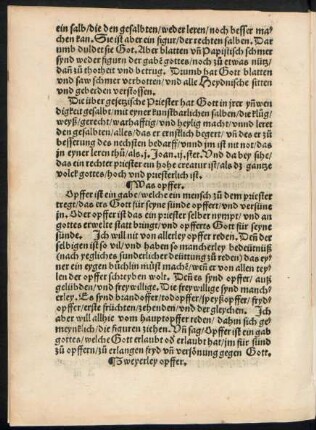 ein salb/die den gesalbten/weder leren/noch besser ma⸗
chen kan. Sie ist aber ein figur/der rechten salben. Dar
umb duldet sie Got. Aber blatten vñ Papistisch schmer
synd weder figurn der gabẽ gottes/noch zu etwas nütz/
dañ zu thorheit vnd betrug. Drumb hat Gott blatten
vnd saw schmer verbotten/vnd alle Heydnische sitten
vnd geberden verstossen.
Die über gesetzische Priester hat Gott in jrer ynwen
digkeit gesalbt/mit eyner kunstbarlichen salben/die klůg/
weyß/gerecht/warhafftig/vnd heylig macht/vnnd leret
den gesalbten/alles/das er ernstlich begert/vñ des er zu
besserung des nechsten bedarff/vnnd jm ist nit not/das
jn eyner leren thů/als.j.Joan.ij.stet. Vnd da bey sihe/
das ein rechter priester ein hohe creatur ist/als dz gantze
volck gottes/hoch vnd priesterlich ist.
¶Was opffer.
Opffer ist ein gabe/welche ein mensch zu dem priester
tregt/das ers Gott für seyne sünde opffert/vnd versüne
jn. Oder opffer ist das ein priester selber nympt/vnd an
gottes erwelte statt bringt/vnd opfferts Gott für seyne
sünde. Ich will nit von allerley opffer reden. Deñ der
selbigen ist so vil/vnd haben so mancherley bedeütnüß
(nach yegliches sünderlicher deüttung zu reden) das ey⸗
ner ein eygen büchlin můst machẽ/weñ er von allen tey
len der opffer schreyben wolt. Deñ es synd opffer/auß
gelübden/vnd freywillige. Die freywillige synd manch⸗
erley. Es synd brandoffer/todopffer/speyßopffer/fryd⸗
opffer/erste früchten/zehenden/vnd der gleychen. Ich
aber will allhie vom hauptopffer reden/dahin sich ge⸗
meynklich/die figuren ziehen. Vñ sag/Opffer ist ein gab
gottes/welche Gott erlaubt od erlaubt hat/jm für sünd
zu opffern/zu erlangen fryd vñ versönung gegen Gott.
¶Zweyerley opffer.